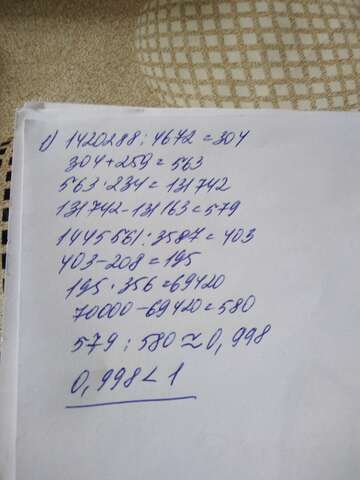 1) 1420288 : 4672 = 304
304 + 259 = 563
563 · 234 = 131742
131742 - 131163 = 579
1445561 : 3587 = 403
403 - 208 = 195
195 · 356 = 69420
70000 - 69420 = 580
579 : 580 ≈ 0,998
0,998 < 1